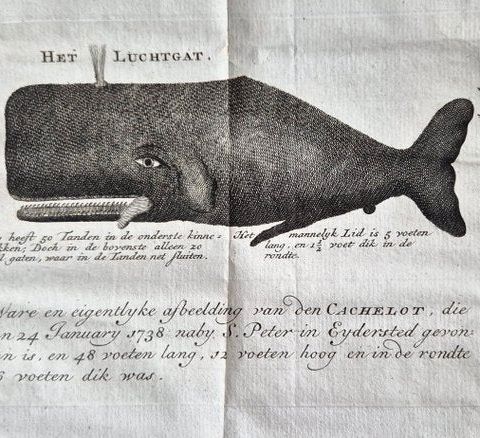 HET LUCHTGAT.
heeft 50 Tanden in de onderste kinne-
kken; Doch in de bovenste alleen 20
gaten, waar in de Tanden net sluiten.
Het mannelyk Lid is 5 voeten
lang, en 1½ voet dik in de
rondte.
Ware en eigentlyke afbeelding van den CACHELOT, die
n 24 January 1738 naby S. Peter in Eydersted gevon:
en is, en 48 voeten lang, 12 voeten hoog en in de rondte
6 voeten dik was.